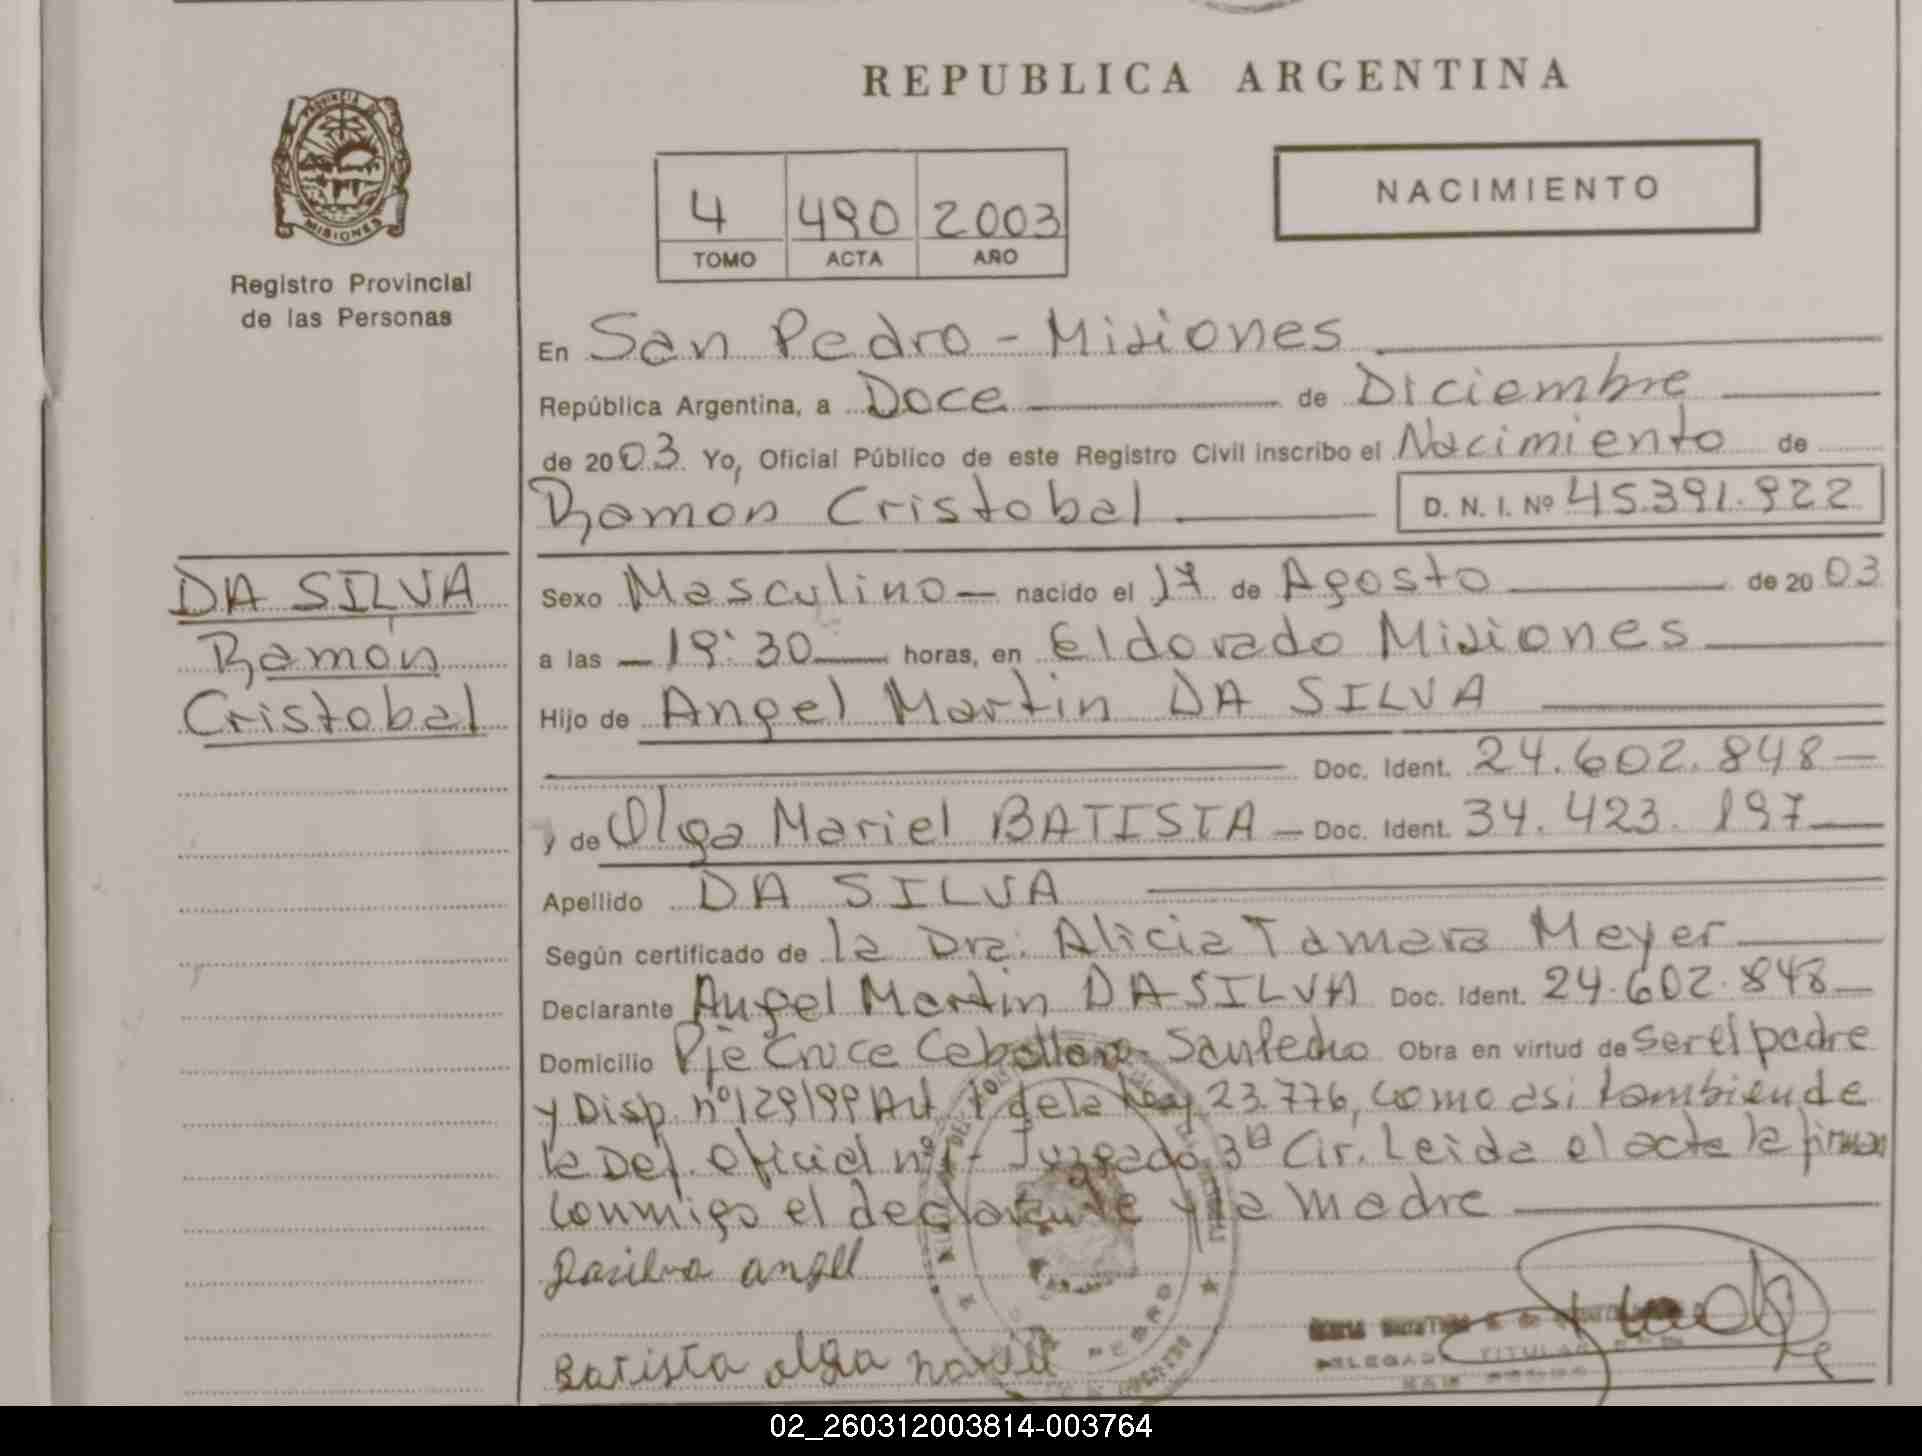 REPUBLICA ARGENTINA
PROVINCIA
MISIONES
Registro Provincial
de las Personas
4 490 2003
TOMO ACTA AÑO
NACIMIENTO
En San Pedro - Misiones
República Argentina, a Doce de Diciembre
de 2003. Yo, Oficial Público de este Registro Civil inscribo el Nacimiento de
Ramon Cristobal D. N. I. Nº 45.391.922
DA SILVA
Ramón
Cristobal
Sexo Masculino - nacido el 17 de Agosto de 2003
a las - 19:30 horas, en Eldorado Misiones
Hijo de Angel Martin DA SILVA
Doc. Ident. 24.602.848-
y de Olga Mariel BATISTA - Doc. Ident. 34.423.197
Apellido DA SILVA
Según certificado de la Dra. Alicia Tamara Meyer
Declarante Angel Martin DA SILVA Doc. Ident. 24.602.848-
Domicilio Pje Cruce Caballero - San Pedro Obra en virtud de ser el padre
y Disp. nº 129/99 Art. 1 de la Ley 23.776, como asi tambien de
la Def. Oficial nº 1 - Juzgado 3ª Cir. Leida el acta la firman
conmigo el declarante y la madre
Dasilva angel
Batista olga mariel
PEDRO
DELEGADA TITULAR
SAN PEDRO
02_260312003814-003764